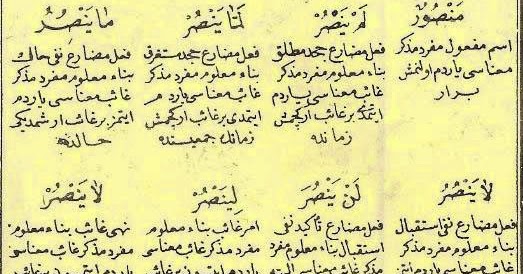 مَنْصُورٌ
اسم مفعول مفرد مذكر
معناسى ياردم اولنمش
برار
لَمْ يَنْصُرْ
فعل مضارع جحد مطلق
بناء معلوم مفرد مذكر
غائب معناسى ياردم
ايتمدى بر غائب ار كچمش
زمانده
لَمَّا يَنْصُرْ
فعل مضارع جحد مستغرق
بناء معلوم مفرد مذكر
غائب معناسى ياردم
ايتمدى بر غائب ار كچمش
زمانك جميعسنده
مَا يَنْصُرُ
فعل مضارع نفى حال
بناء معلوم مفرد مذكر
غائب معناسى ياردم
ايتمز بر غائب ار شمديكى
حالده
لَا يَنْصُرُ
فعل مضارع نفى استقبال
بناء معلوم مفرد مذكر
غائب معناسى ياردم
لَنْ يَنْصُرَ
فعل مضارع تأكيد نفى
استقبال بناء معلوم مفرد
مذكر غائب معناسى البته
لِيَنْصُرْ
امر غائب بناء معلوم
مفرد مذكر غائب معناسى
ياردم بر غائب
لَا يَنْصُرْ
نهى غائب بناء معلوم
مفرد مذكر غائب معناسى
ياردم بر غائب